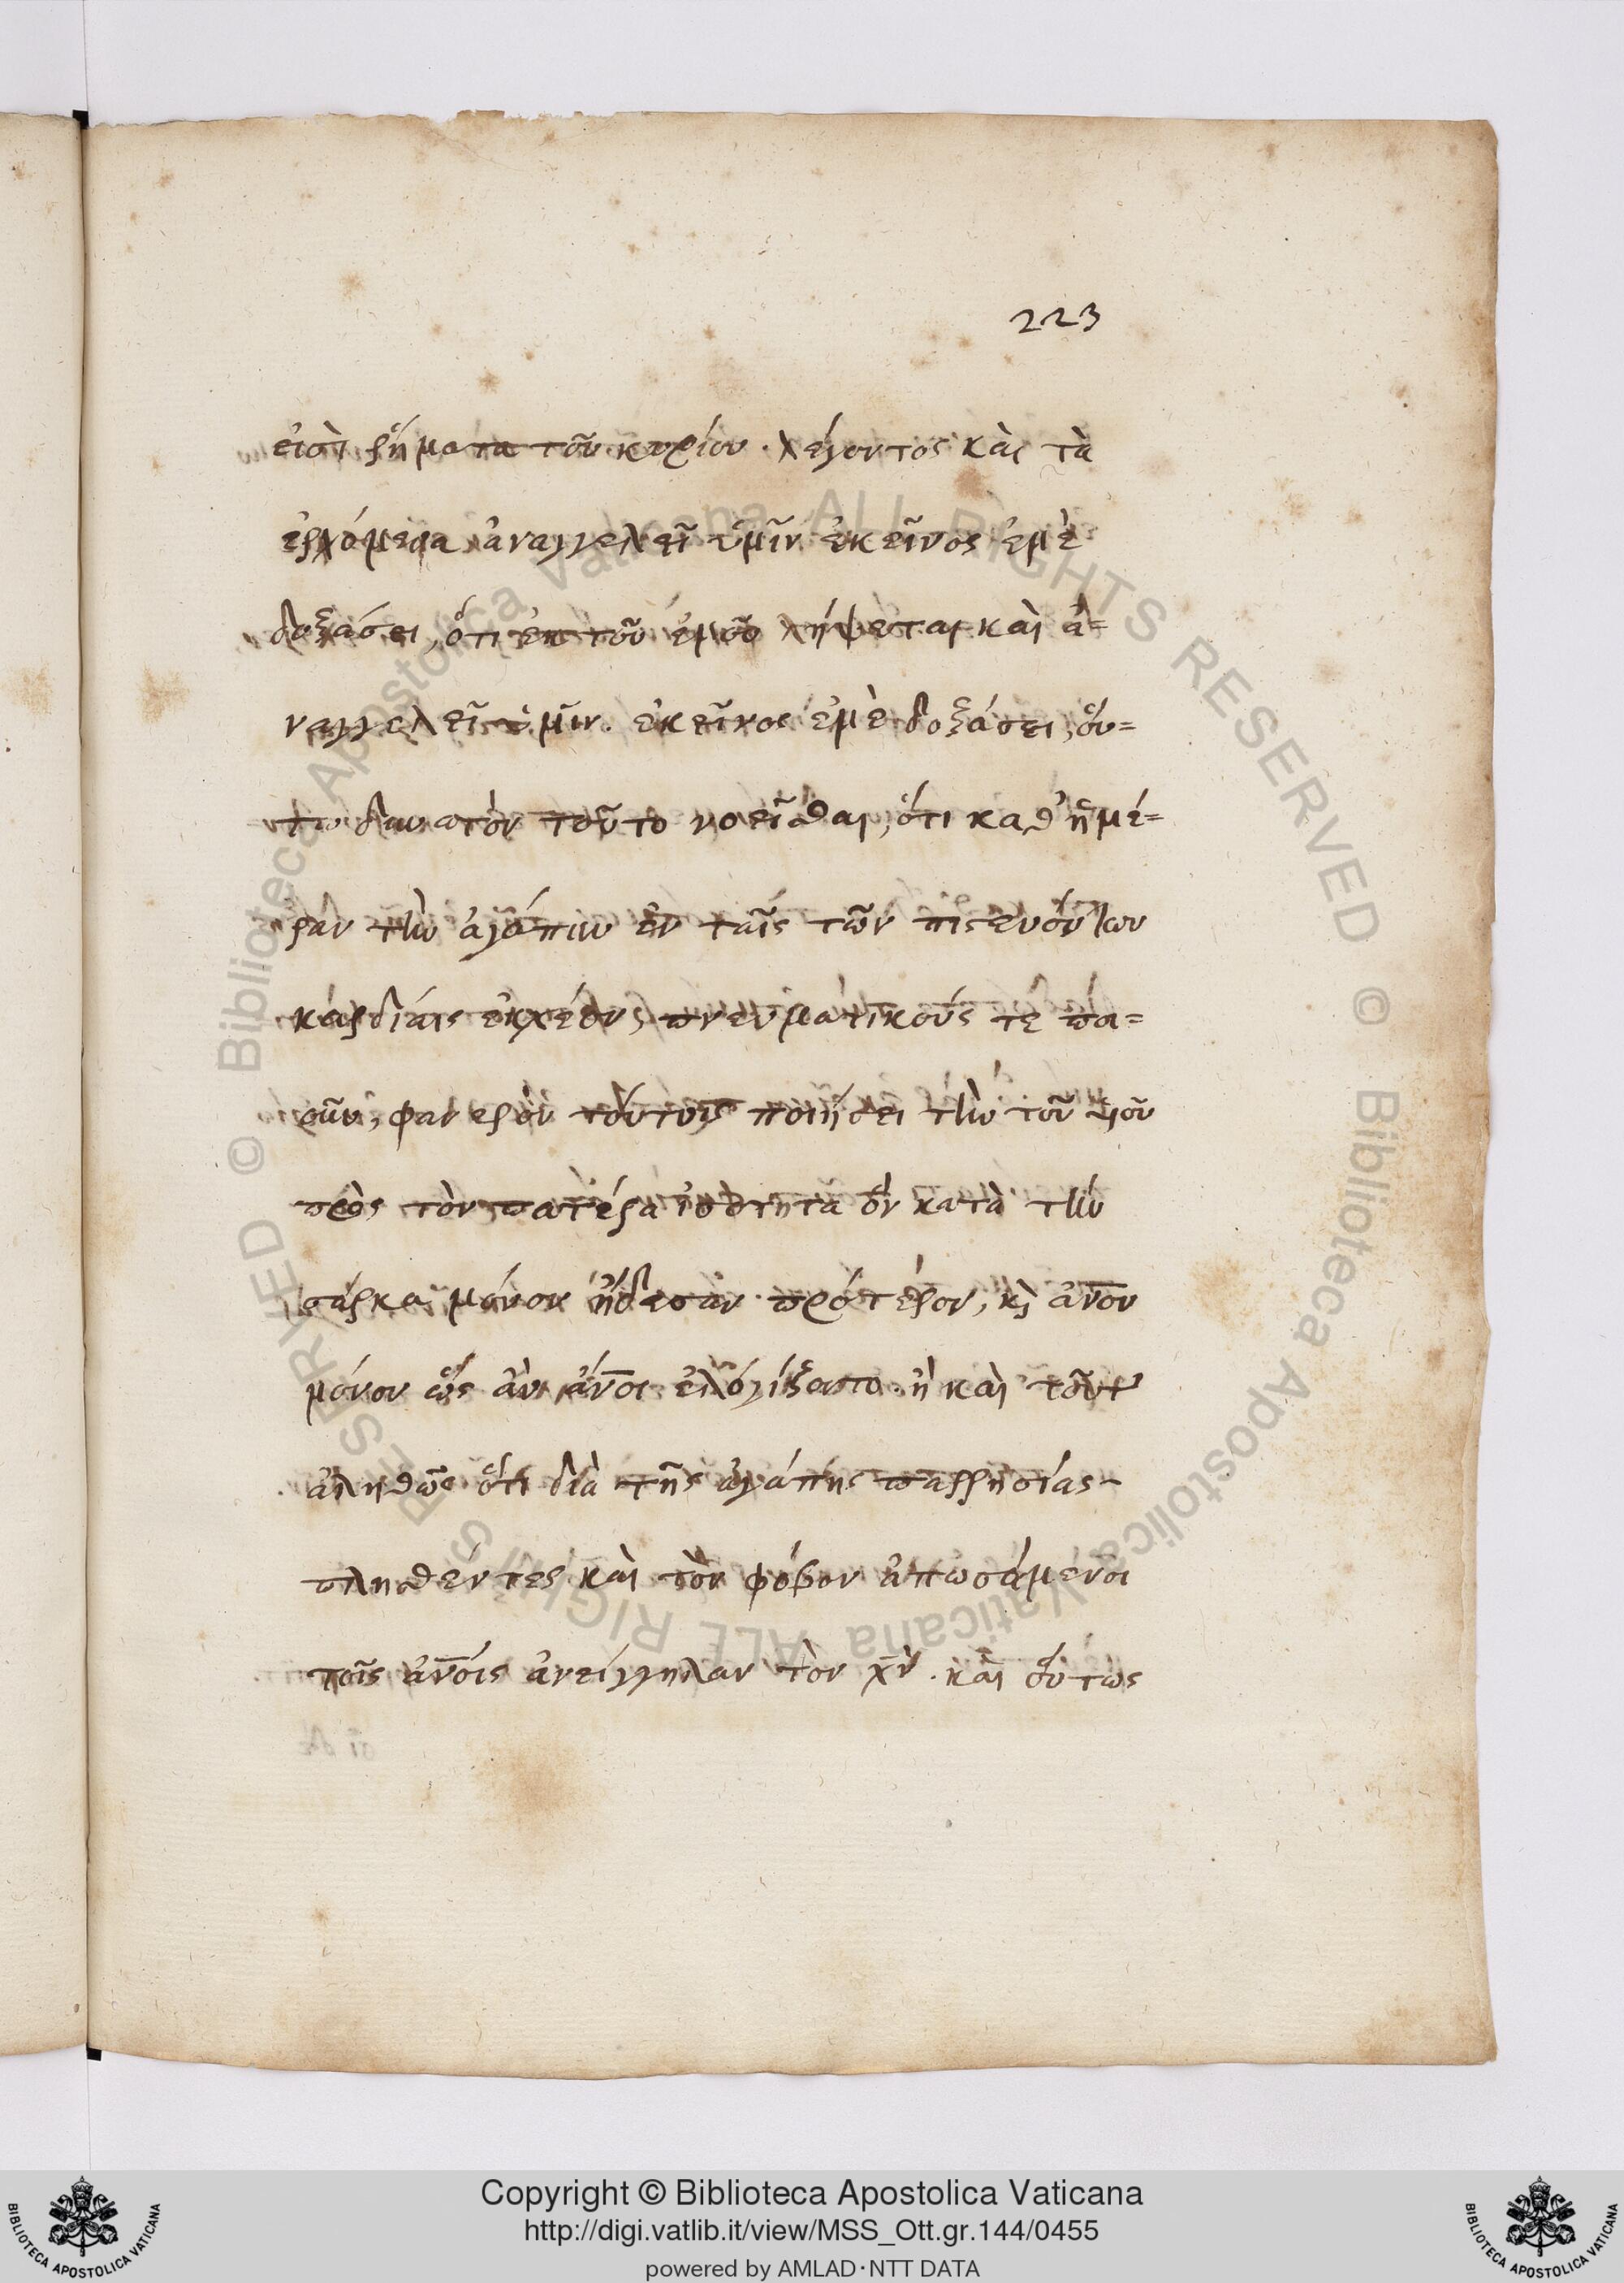 223
εἰσὶ ῥήματα τοῦ κυρίου. λέγοντος καὶ τὰ
ἐρχόμενα ἀναγγελεῖ ὑμῖν ἐκεῖνος ἐμὲ
δοξάσει, ὅτι ἐκ τοῦ ἐμοῦ λήψεται καὶ ἀ=
ναγγελεῖ ὑμῖν. ἐκεῖνος ἐμὲ δοξάσει, οὕ=
τω δυνατὸν τοῦτο νοεῖσθαι, ὅτι καθ' ἡμέ=
ραν τὴν ἀγάπην ἐν ταῖς τῶν πιστευόντων
καρδίαις ἐκχέον, πνευματικούς τε ποι=
οῦν, φανερὸν τούτοις ποιήσει τὴν τοῦ υἱοῦ
πρὸς τὸν πατέρα ἰσότητα ὃν κατὰ τὴν
σάρκα μόνον ᾔδεσαν πρότερον, κὶ ἄνον
μόνον ὡς ἂν ἄνοι ἐλογίξαντο. ἢ καὶ τοῦτο
ἀληθῶς ὅτι διὰ τῆς ἀγάπης παρρησίας
πλησθέντες καὶ τὸν φόβον ἀπωσάμενοι
τοῖς ἀνοις ἀνείγγηλαν τὸν χν. καὶ οὕτως
Copyright © Biblioteca Apostolica Vaticana
http://digi.vatlib.it/view/MSS_Ott.gr.144/0455
powered by AMLAD·NTT DATA
© Biblioteca Apostolica Vaticana ALL RIGHTS RESERVED © Biblioteca Apostolica Vaticana ALL RIGHTS RESERVED
BIBLIOTECA APOSTOLICA VATICANA
BIBLIOTECA APOSTOLICA VATICANA